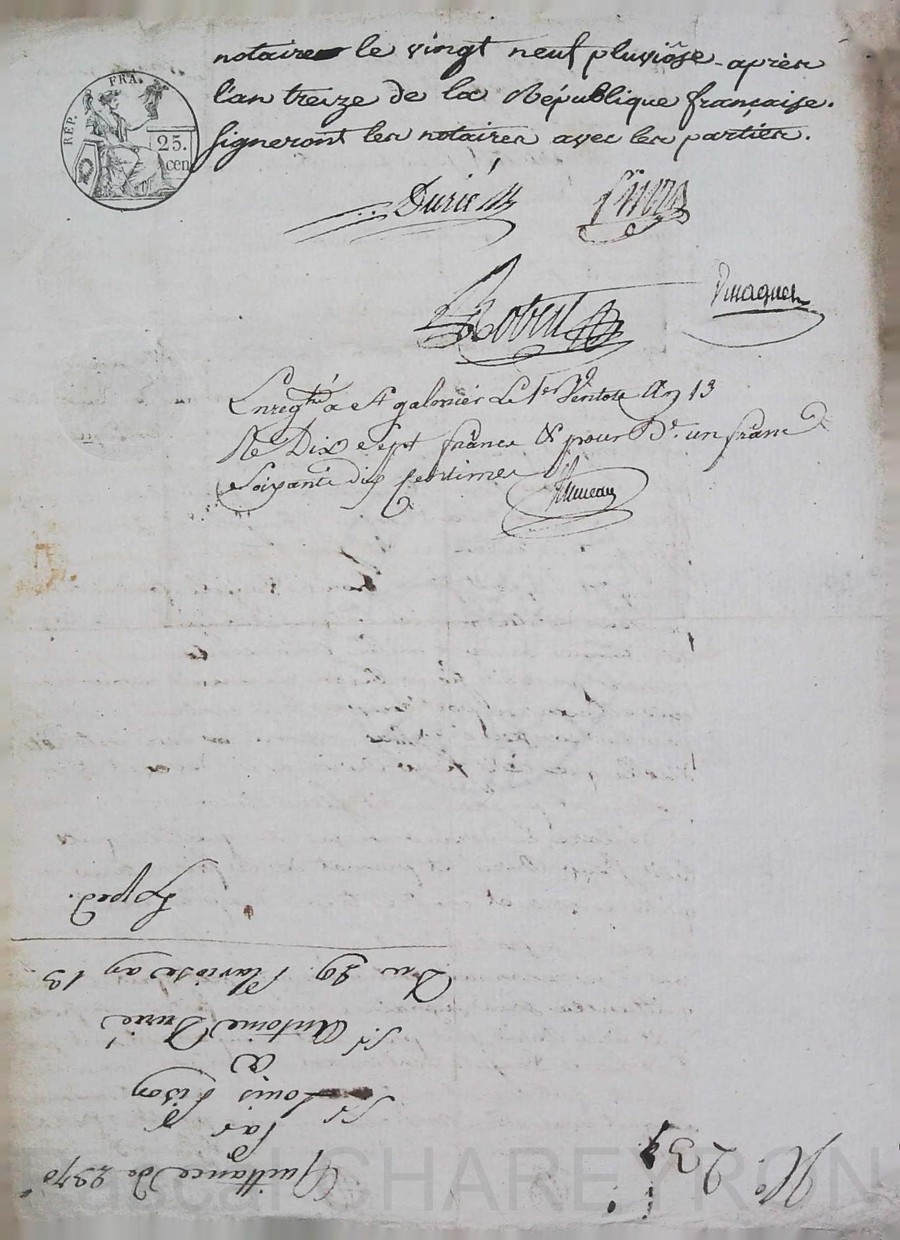 RÉP. FRA.
25.
cen
notaires le vingt neuf pluviôse après
l'an treize de la République française.
signeront les notaires avec les parties.
Durié
Robert
Enregtré à St galmier Le 1er Ventose An 13
Re Dix sept francs & pour Dr. un franc
soixante dix centimes
Exped.
Du 29. Pluviose an 13
Sr Antoine Durié
a
Sr Louis
par
Quittance de 2370
No. 239
Pascal CHAREYRON